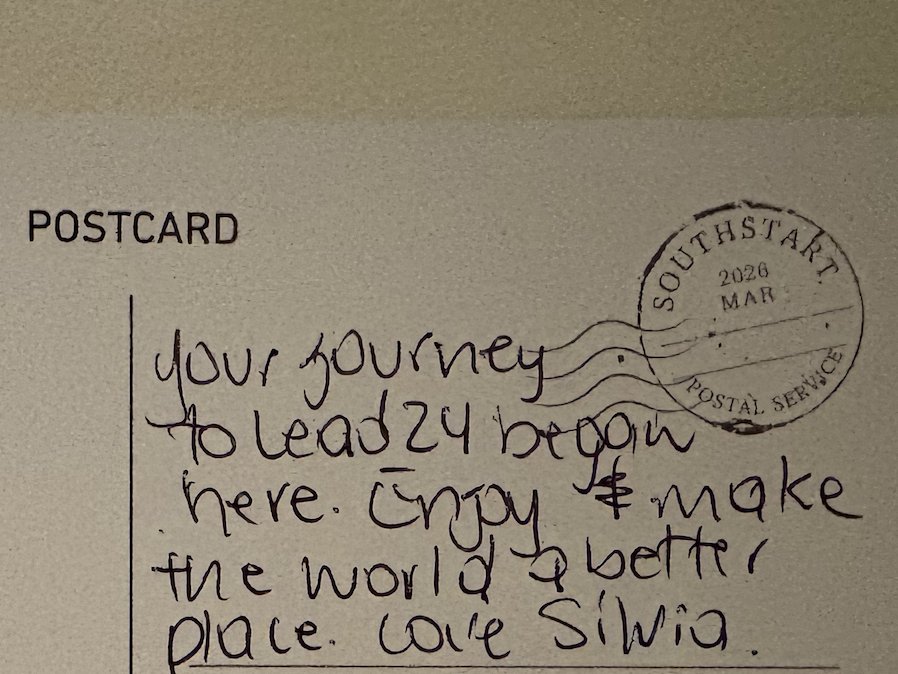 POSTCARD
SOUTHSTART.
2026
MAR
POSTAL SERVICE
your journey
to lead 24 began
here. Enjoy & make
the world a better
place. love Silvia.